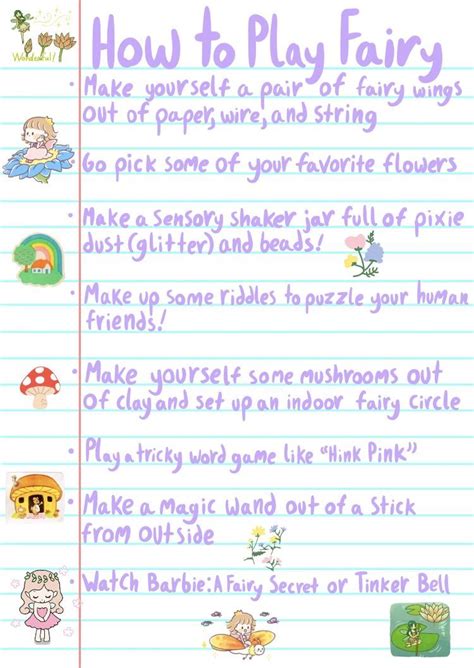 Wonderful!
How to Play Fairy
• Make yourself a pair of fairy wings
out of paper, wire, and string
• Go pick some of your favorite flowers
• Make a sensory shaker jar full of pixie
dust (glitter) and beads!
• Make up some riddles to puzzle your human
friends!
• Make yourself some mushrooms out
of clay and set up an indoor fairy circle
• Play a tricky word game like "Hink Pink"
• Make a magic wand out of a stick
from outside
• Watch Barbie: A Fairy Secret or Tinker Bell